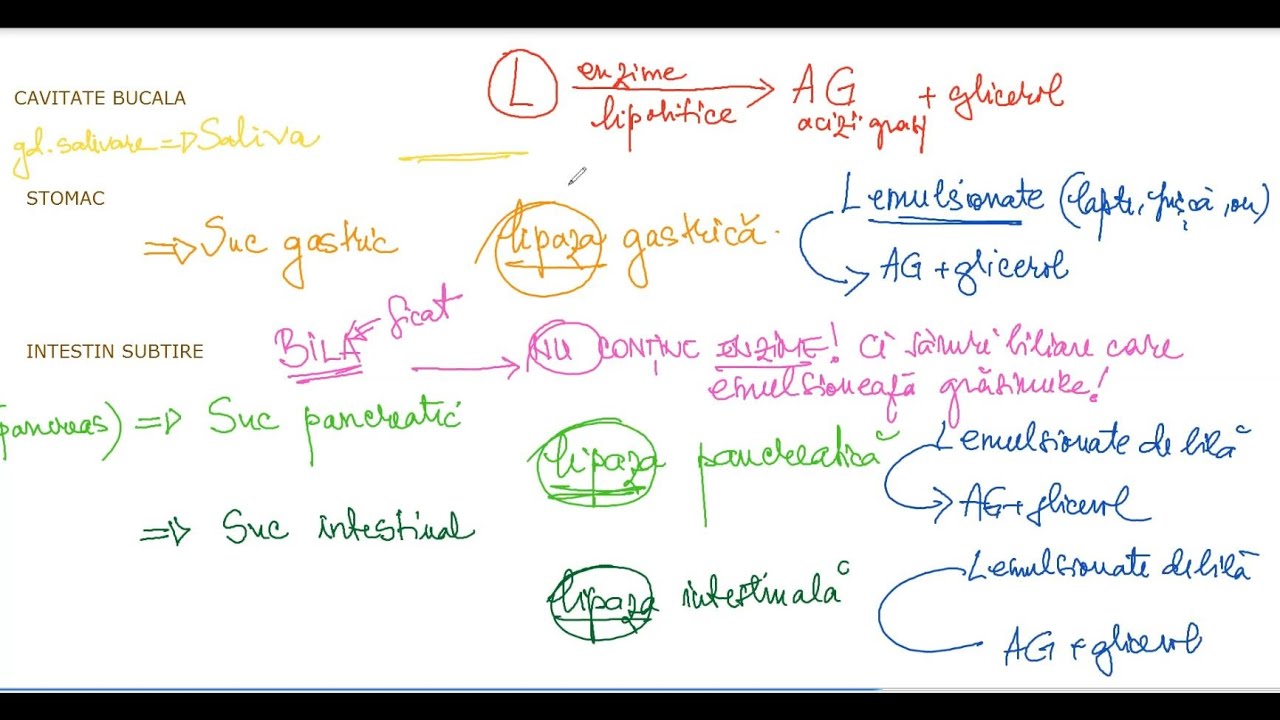 L enzime lipolitice → AG + glicerol
acizi grași
CAVITATE BUCALA
gl. salivare => Saliva
STOMAC
=> Suc gastric lipaza gastrică.
L emulsionate (lapte, frișcă, ou)
→ AG + glicerol
INTESTIN SUBTIRE
BILA ⇐ ficat → NU CONȚINE ENZIME! Ci săruri biliare care
emulsionează grăsimile!
(pancreas) => Suc pancreatic lipaza pancreatică
L emulsionate de bilă
→ AG + glicerol
=> Suc intestinal
lipaza intestinală
L emulsionate de bilă
AG + glicerol